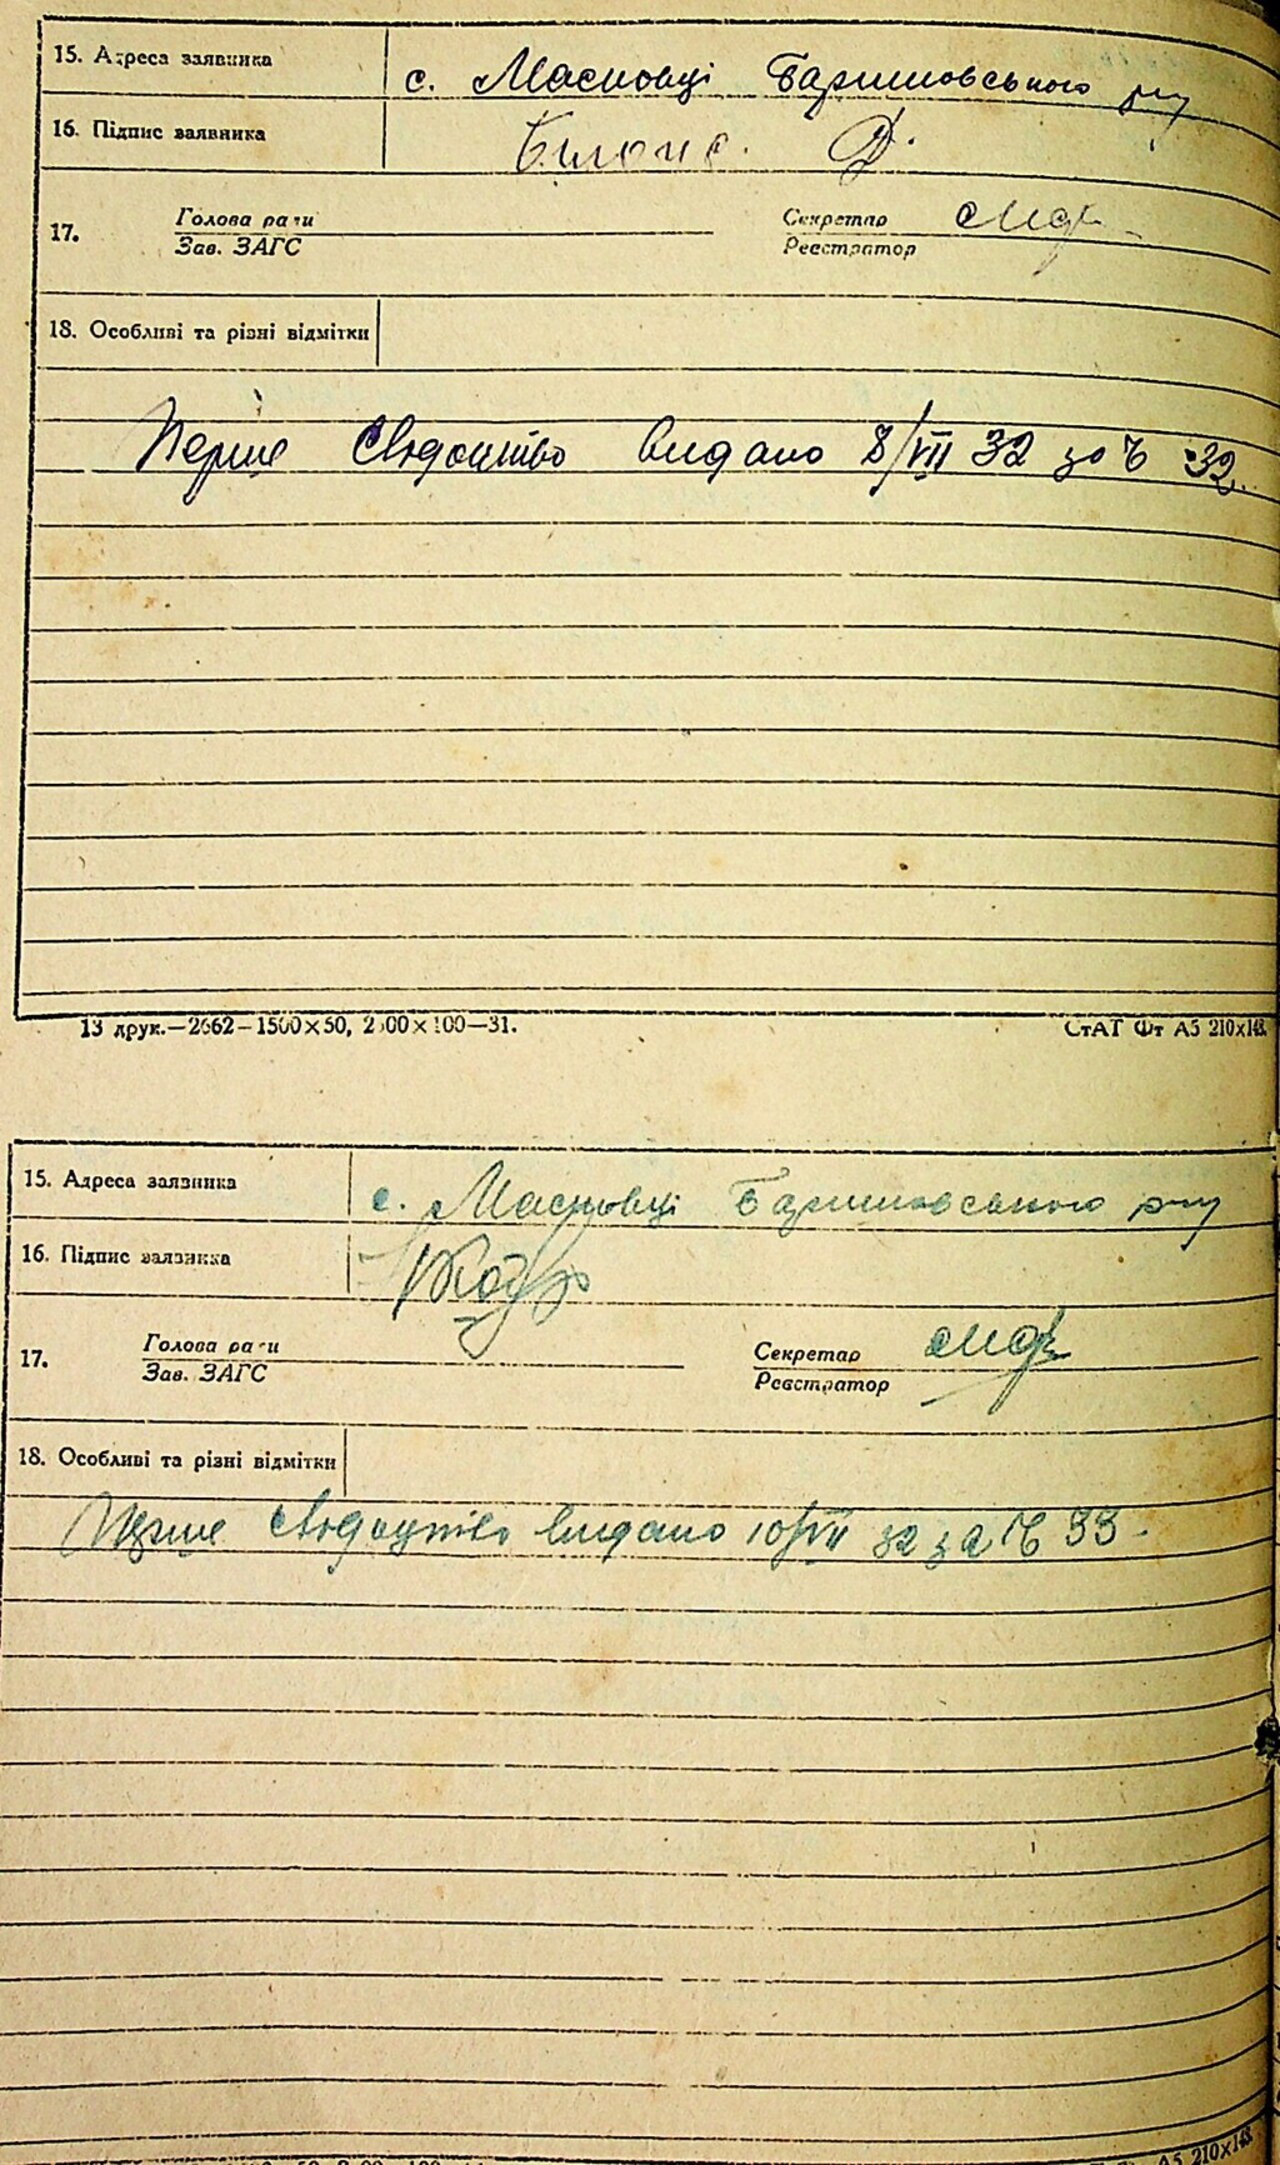 15. Адреса заявника с. Масковці Баришовського р-ну
16. Підпис заявника
17. Голова ради Секретар
Зав. ЗАГС Реєстратор
18. Особливі та різні відмітки
Перше Свідоцтво видано 8/VII 32 за № 32
13 друк.—2662—1500×50, 2500×100—31. СтАТ Фт А5 210×148.
15. Адреса заявника с. Масковці Баришовського р-ну
16. Підпис заявника
17. Голова ради Секретар
Зав. ЗАГС Реєстратор
18. Особливі та різні відмітки
Перше Свідоцтво видано 10/VII 32 за № 33
А5 210×148